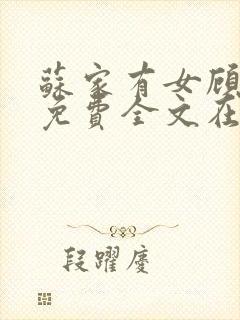 蘇家有女顧
免費全文在
段躍慶